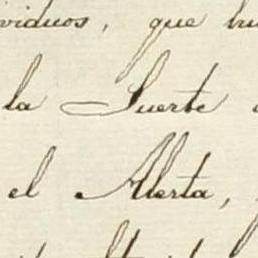 viduos, que hu
la Suerte
el Alerta,